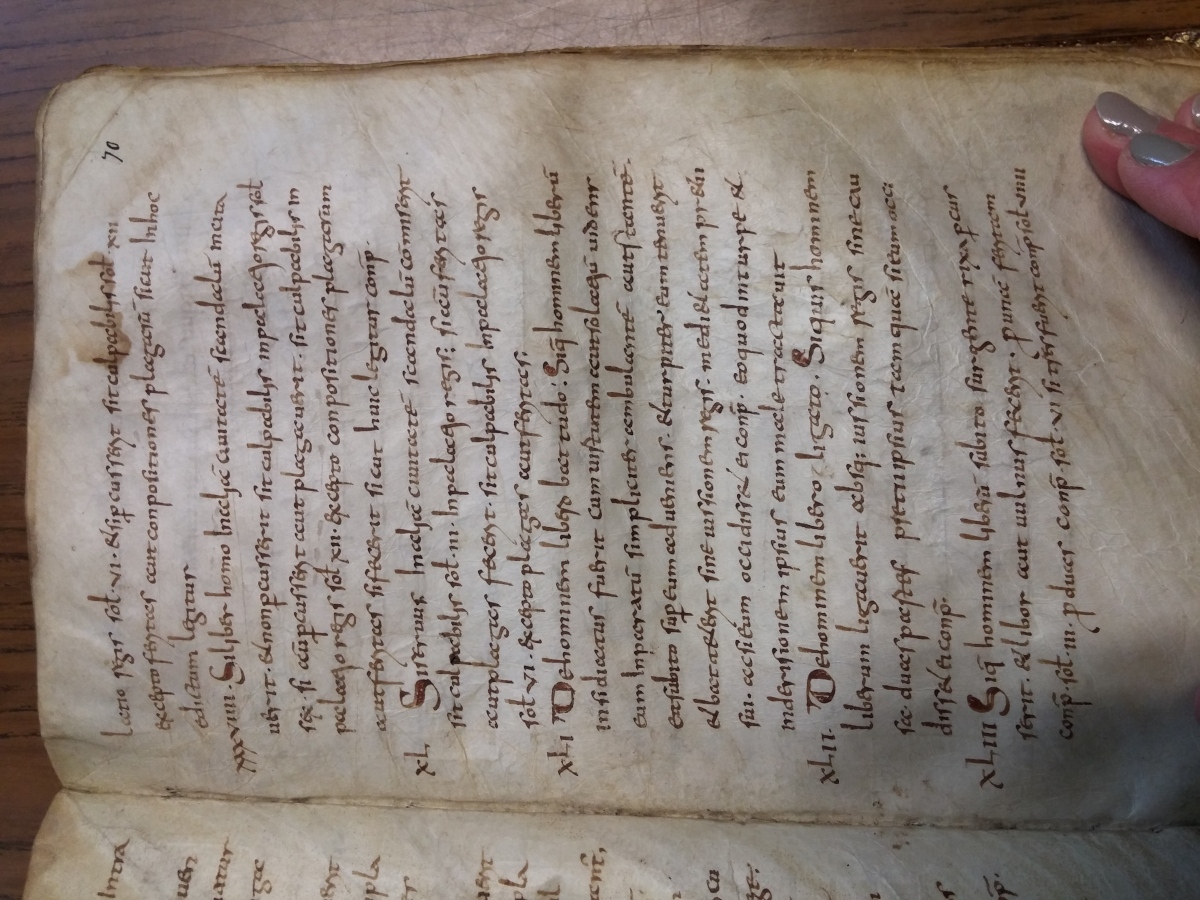 intra
70
latio regis sol· vi· et si p̄cusserit sit culpabilis sol· xii
excepto feritas aut conpositiones plagarū sicut in hoc
edictum legitur
xxxviiii· Si liber homo in alia civitatē scandalū incita
verit· et non p̄cusserit sit culpabilis in palatio regis sol
sex· si aū p̄cusserit aut plaga verit· sit culpabilis in
palatio regis sol xii· excepto conpositiones plagarum
aut feritas si fecerit sicut huic legitur conp̄·
XL Si servus in alia civitatē scandalū cōmiserit
sit culpabilis sol· iii· in palatio regis; si aū feritas
aut plagas fecerit· sit culpabilis in palatio regis
sol vi· excepto plagas aut feritas;
XLI De hominem libero battudo; Si q̄ hominem liberū
insidiatus fuerit cum virtutem aut solatiū videns
eum inparatū simpliciter ambulantē aut stantē·
et subito sup̄ eum adveniens· et turpiter eum tenuerit
et battaterit sine iussionem regis· medietatem pretii
sui· ac si eum occidisset ei conp̄· eo quod in turpe et
inderisionem ipsius eum male tractavit
XLII· De hominem libero ligato· Si quis hominem
liberum ligaverit absq; iussionem regis sine cau
sa· duas partes pretii ipsius tamquam si eum occi
disset ei conp̄·
XLIII Si q̄ hominem liberū subito surgente rixa p̄cus
serit· et libor aut vulnus fecerit· p̄ una feritam
conp̄· sol· iii· p̄ duas conp̄· sol· vi si tres fuerit conp̄ sol viiii